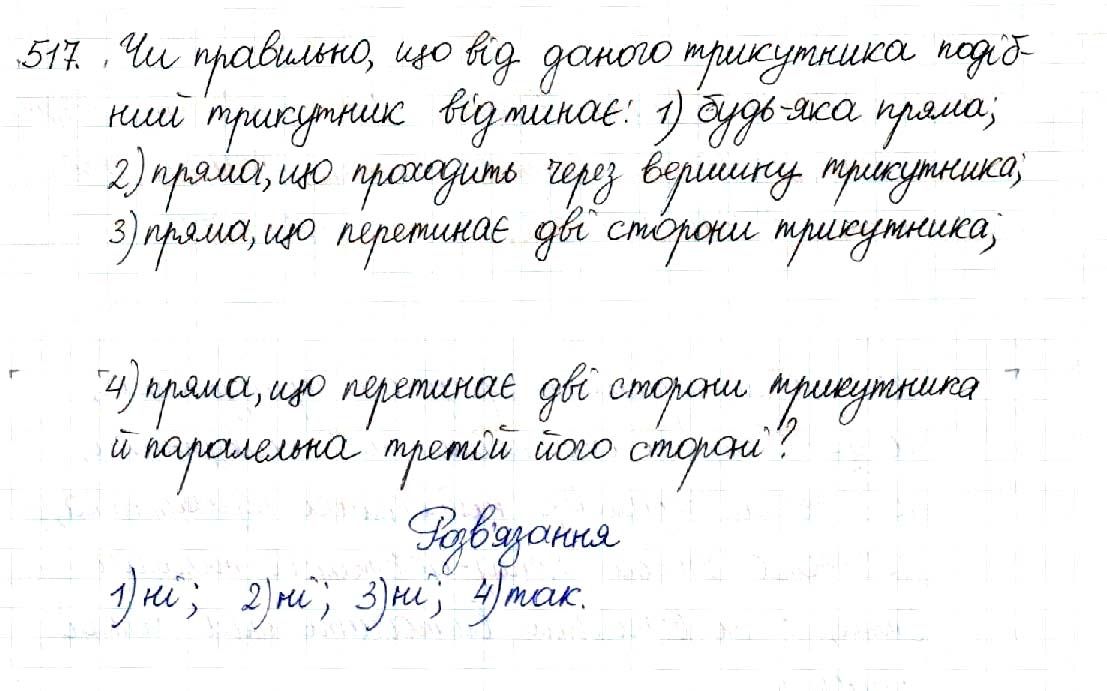 517. Чи правильно, що від даного трикутника подіб-
ний трикутник відтинає: 1) будь-яка пряма;
2) пряма, що проходить через вершину трикутника;
3) пряма, що перетинає дві сторони трикутника;
4) пряма, що перетинає дві сторони трикутника
й паралельна третій його стороні?
Розв'язання
1) ні; 2) ні; 3) ні; 4) так.